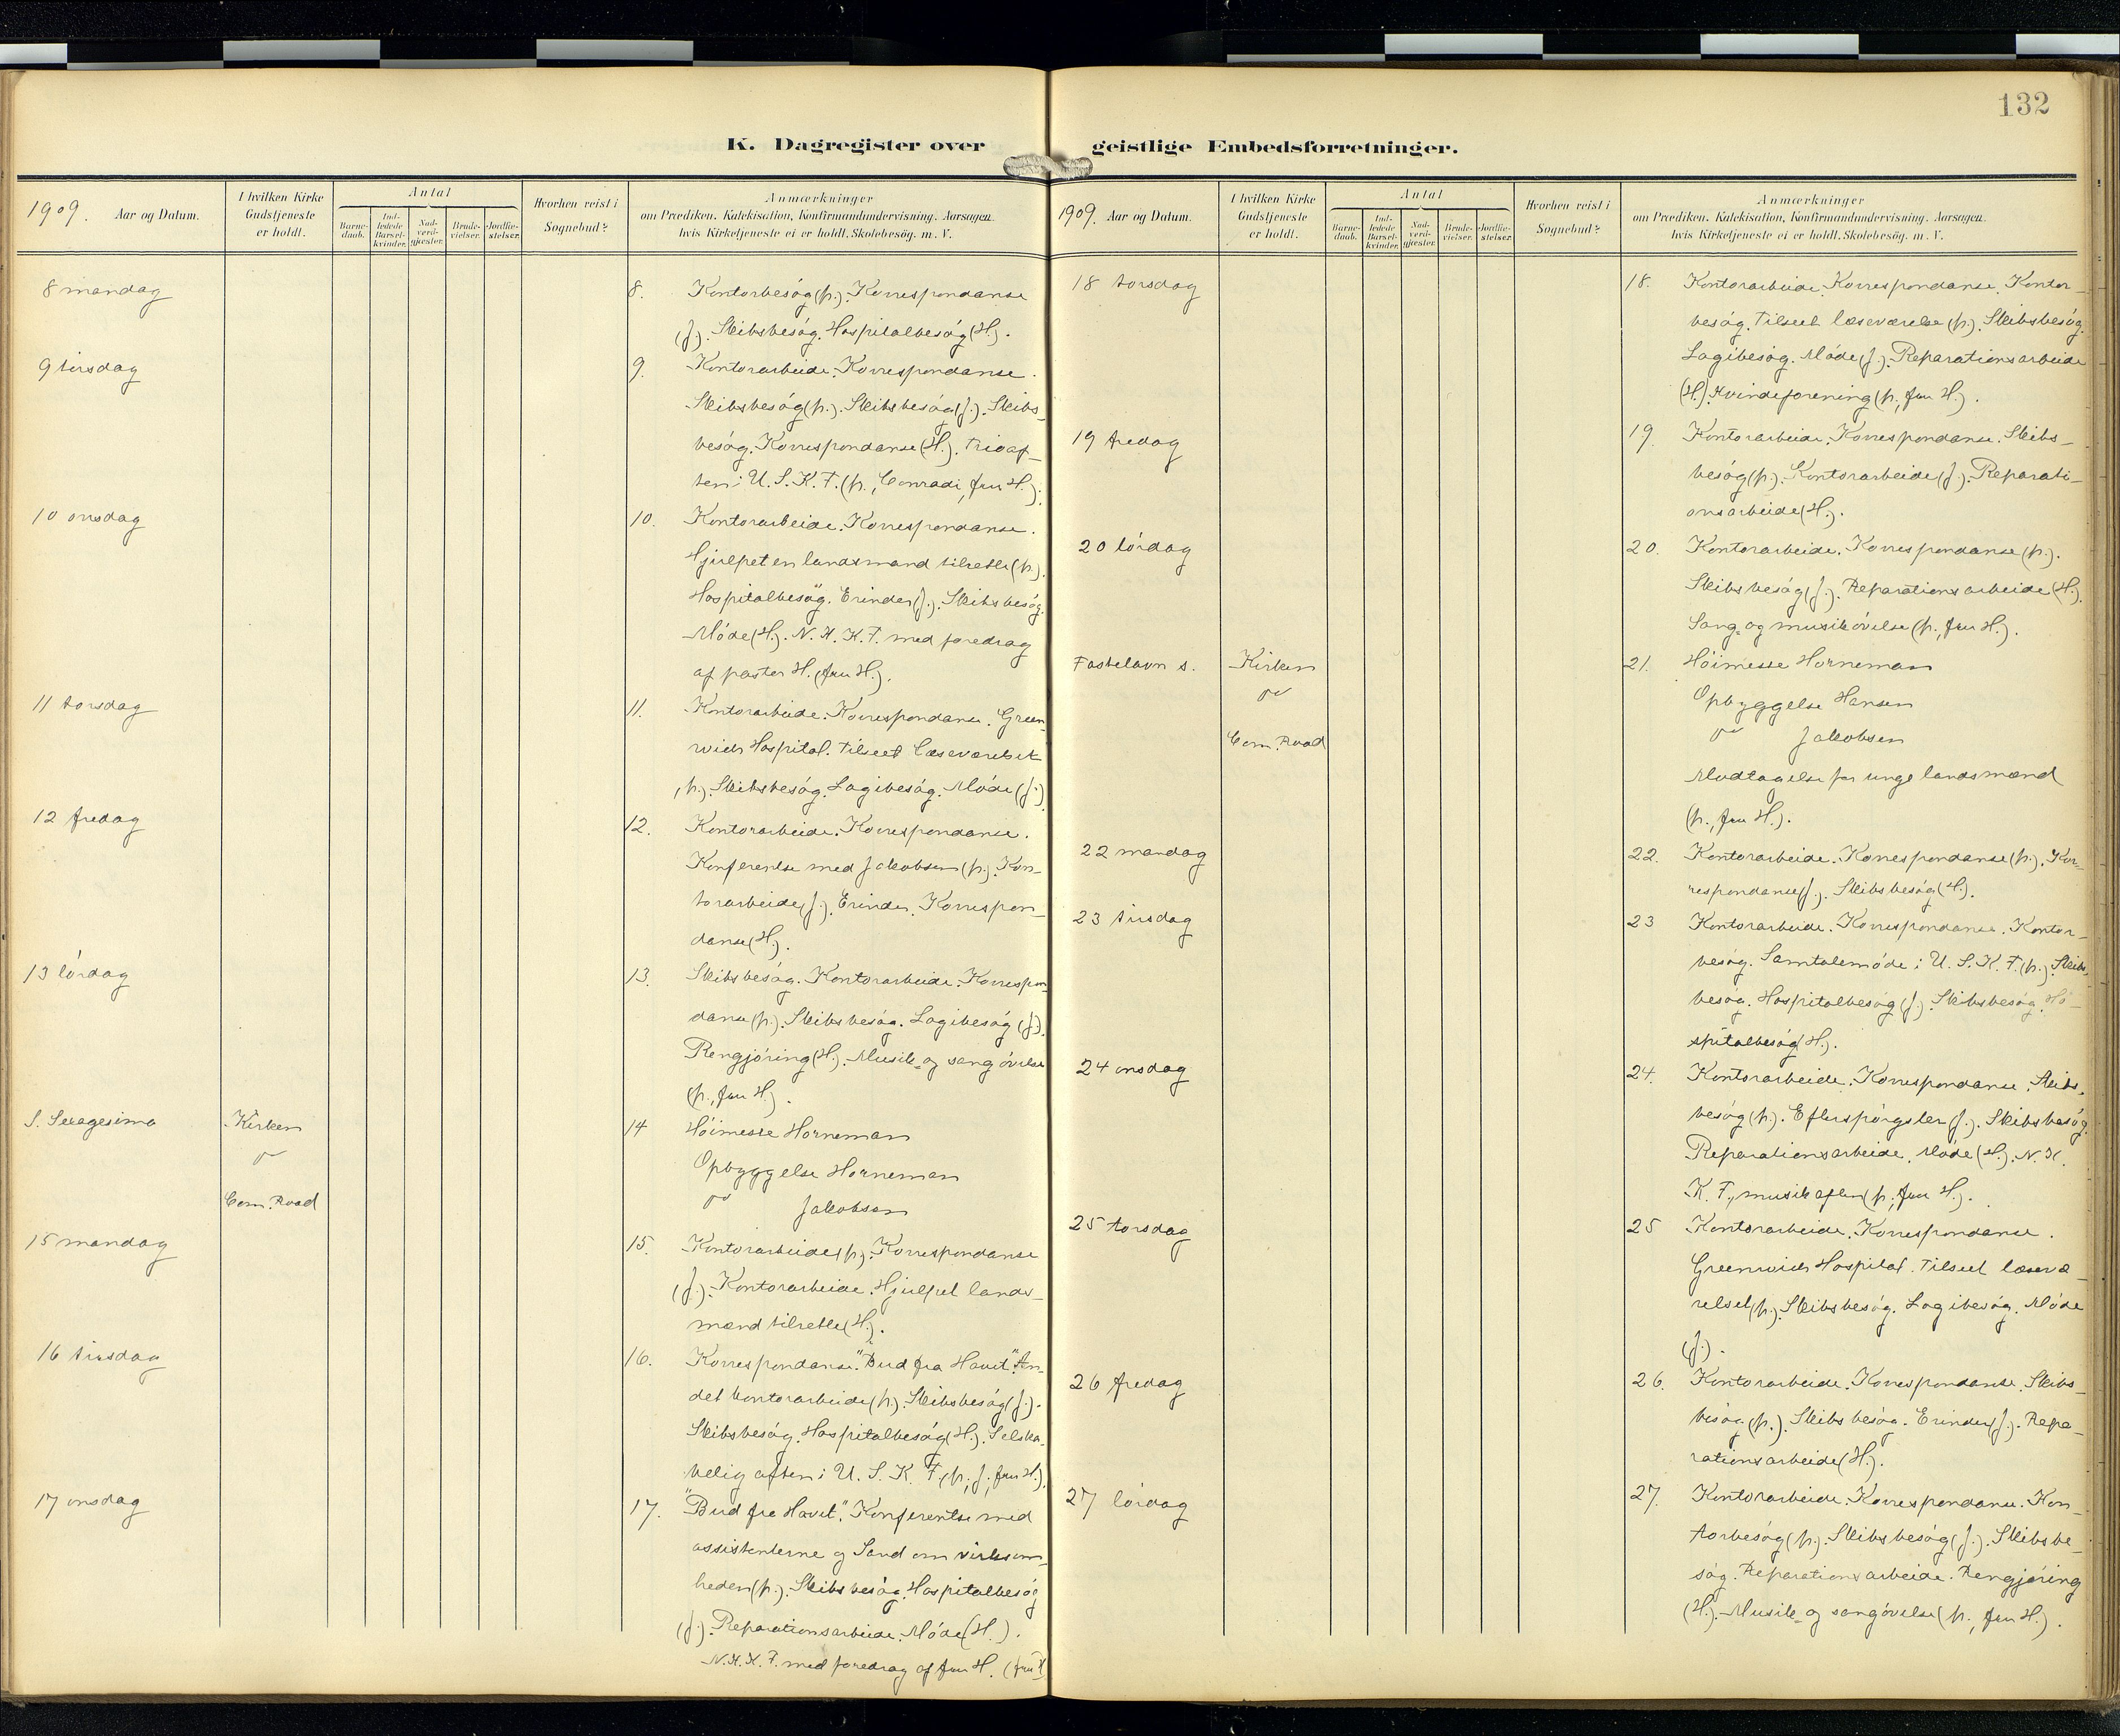 132
K. Dagregister over geistlige Embedsforretninger.
1909. Aar og Datum.
I hvilken Kirke Gudstjeneste er holdt.
Antal
Barnedaab.
Indledede Barselkvinder.
Nadverdgjæster.
Brudevielser.
Jordfæstelser.
Hvorhen reist i Sognebud?
Anmærkninger
om Prædiken. Katekisation, Konfirmandundervisning. Aarsagen
hvis Kirketjeneste ei er holdt. Skolebesøg. m. V.
8 mandag
8. Kontorbesøg (p.). Korrespondanse
(J.). Skibsbesøg. Hospitalbesøg (H.).
9 tirsdag
9. Kontorarbeide. Korrespondanse.
Skibsbesøg (p.). Skibsbesøg (J.). Skibs-
besøg. Korrespondanse (H.). Trioaf-
ten i U. S. K. F. (p., Conradi, fru H.).
10 onsdag
10. Kontorarbeide. Korrespondanse.
Hjulpet en landsmand tilrette (p.).
Hospitalbesøg. Erinder (J.). Skibsbesøg.
Møde (H.). N. K. K. F. med foredrag
af pastor H. (fru H.).
11 torsdag
11. Kontorarbeide. Korrespondanse. Green-
wich Hospital. Tilseet læseværelset
(p.). Skibsbesøg. Logibesøg. Møde (J.)
12 fredag
12. Kontorarbeide. Korrespondanse.
Konferentse med Jakobsen (p.). Kon-
torarbeide (J.). Erinder. Korrespon-
danse (H.).
13 lørdag
13. Skibsbesøg. Kontorarbeide. Korrespon-
danse (p.). Skibsbesøg. Logibesøg (J.).
Rengjøring (H.). Musik- og sangøvelse
(p., fru H.).
S. Sexagesima
Kirken
Com. Road
14 Høimesse Horneman
Opbyggelse Horneman
Jakobsen
15 mandag
15. Kontorarbeide (p.). Korrespondanse
(J.). Kontorarbeide. Hjulpet lands-
mænd tilrette (H.).
16 tirsdag
16. Korrespondanse. "Bud fra Havet". An-
det kontorarbeide (p.). Skibsbesøg (J.).
Skibsbesøg. Hospitalbesøg (H.). Selska-
belig aften i U. S. K. F. (p., J., fru H.).
17 onsdag
17. "Bud fra Havet". Konferentse med
assistenterne og Sand om virksom-
heden (p.). Skibsbesøg. Hospitalbesøg
(J.). Reparationsarbeide. Møde (H.).
N. K. K. F. med foredrag af fru H. (fru H
1909. Aar og Datum.
I hvilken Kirke Gudstjeneste er holdt.
Antal
Barnedaab.
Indledede Barselkvinder.
Nadverdgjæster.
Brudevielser.
Jordfæstelser.
Hvorhen reist i Sognebud?
Anmærkninger
om Prædiken. Katekisation, Konfirmandundervisning. Aarsagen
hvis Kirketjeneste ei er holdt. Skolebesøg. m. V.
18 torsdag
18. Kontorarbeide. Korrespondanse. Kontor-
besøg. Tilseet læseværelse (p.). Skibsbesøg.
Logibesøg. Møde (J.). Reparationsarbeide
(H.). Kvindeforening (p., fru H.).
19 fredag
19. Kontorarbeide. Korrespondanse. Skibs-
besøg (p.). Kontorarbeide (J.). Reparati-
onsarbeide (H.).
20 lørdag
20. Kontorarbeide. Korrespondanse (p.).
Skibsbesøg (J.). Reparationsarbeide (H.).
Sang- og musikøvelse (p., fru H.).
Fastelavn s.
Kirken
Com. Road
21. Høimesse Horneman
Opbyggelse Hansen
Jakobsen
Modtagelse for unge landsmænd
(p., fru H.).
22 mandag
22. Kontorarbeide. Korrespondanse (p.). Kor-
respondanse (J.). Skibsbesøg (H.).
23 tirsdag
23 Kontorarbeide. Korrespondanse. Kontor-
besøg. Samtalemøde i U. S. K. F. (p.). Skibs-
besøg. Hospitalbesøg (J.). Skibsbesøg. Ho-
spitalbesøg (H.).
24 onsdag
24. Kontorarbeide. Korrespondanse. Skibs-
besøg (p.). Efterspørgsler (J.). Skibsbesøg.
Reparationsarbeide. Møde (H.). N. K.
K. F., musikaften (p., fru H.).
25 torsdag
25 Kontorarbeide. Korrespondanse.
Greenwich Hospital. Tilseet læsevæ-
relset (p.). Skibsbesøg. Logibesøg. Møde
(J.).
26 fredag
26. Kontorarbeide. Korrespondanse. Skibs-
besøg (p.). Skibsbesøg. Erinder (J.). Repa-
rationsarbeide (H.).
27 lørdag
27. Kontorarbeide. Korrespondanse. Kon-
torbesøg (p.). Skibsbesøg (J.). Skibsbe-
søg. Reparationsarbeide. Rengjøring
(H.). Musik- og sangøvelse (p., fru H.).